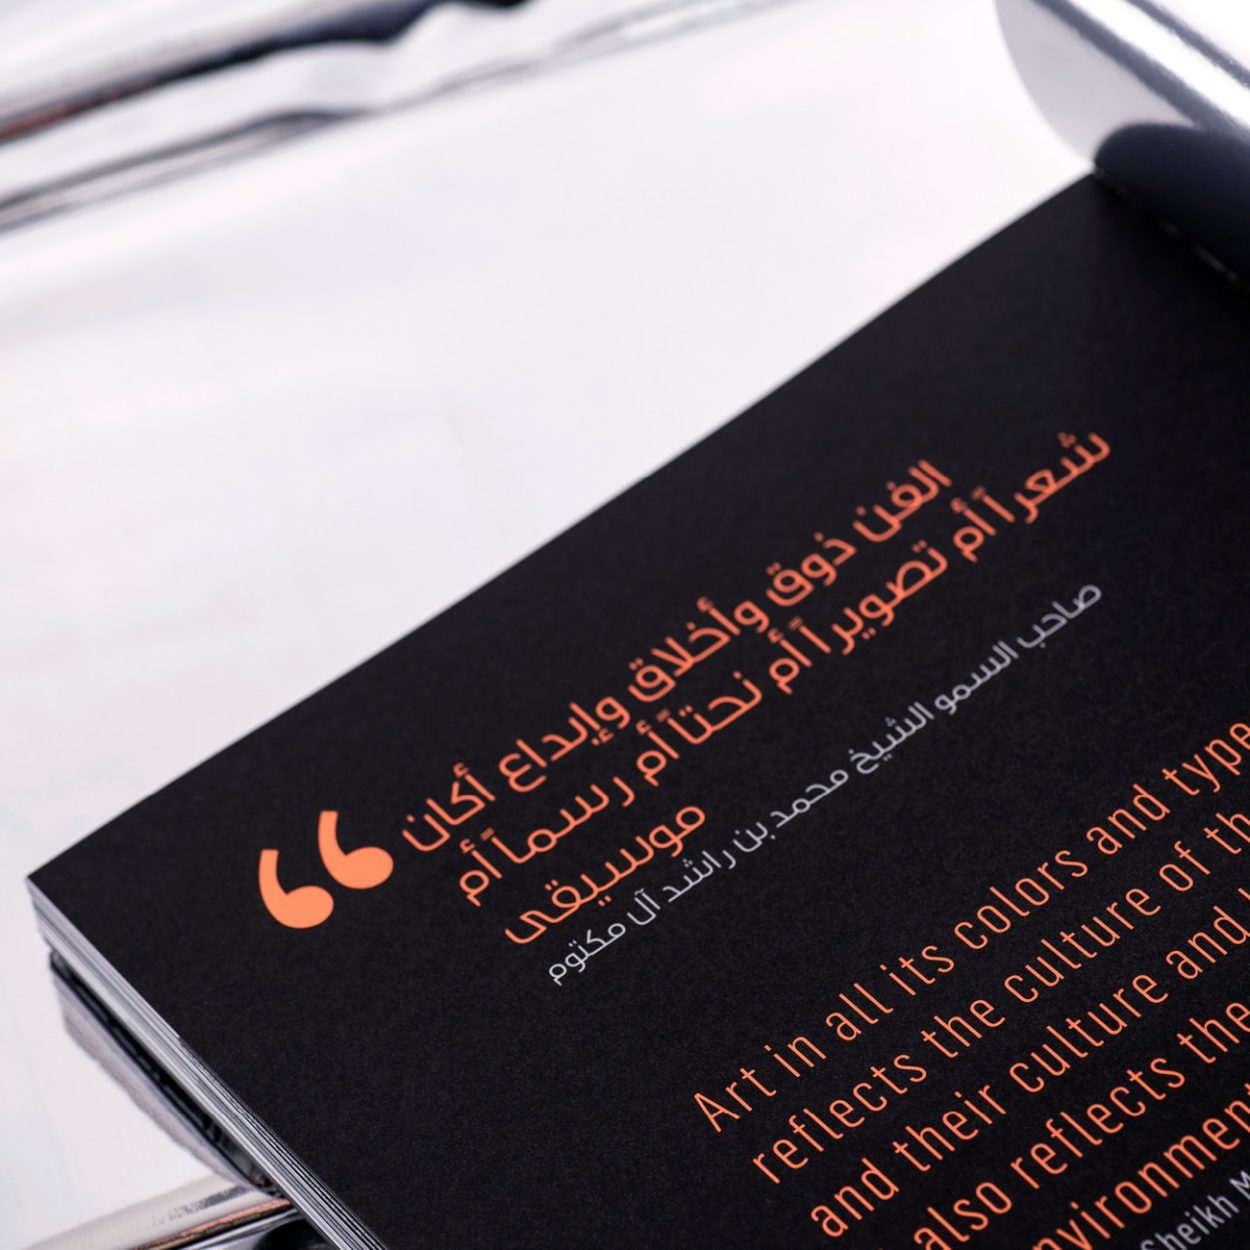 الفن ذوق وأخلاق وإبداع أكان
شعراً أم تصويراً أم نحتاً أم رسماً أم
موسيقى
صاحب السمو الشيخ محمد بن راشد آل مكتوم
Art in all its colors and type
reflects the culture of th
and their culture and
also reflects the
nvironment
Sheikh M